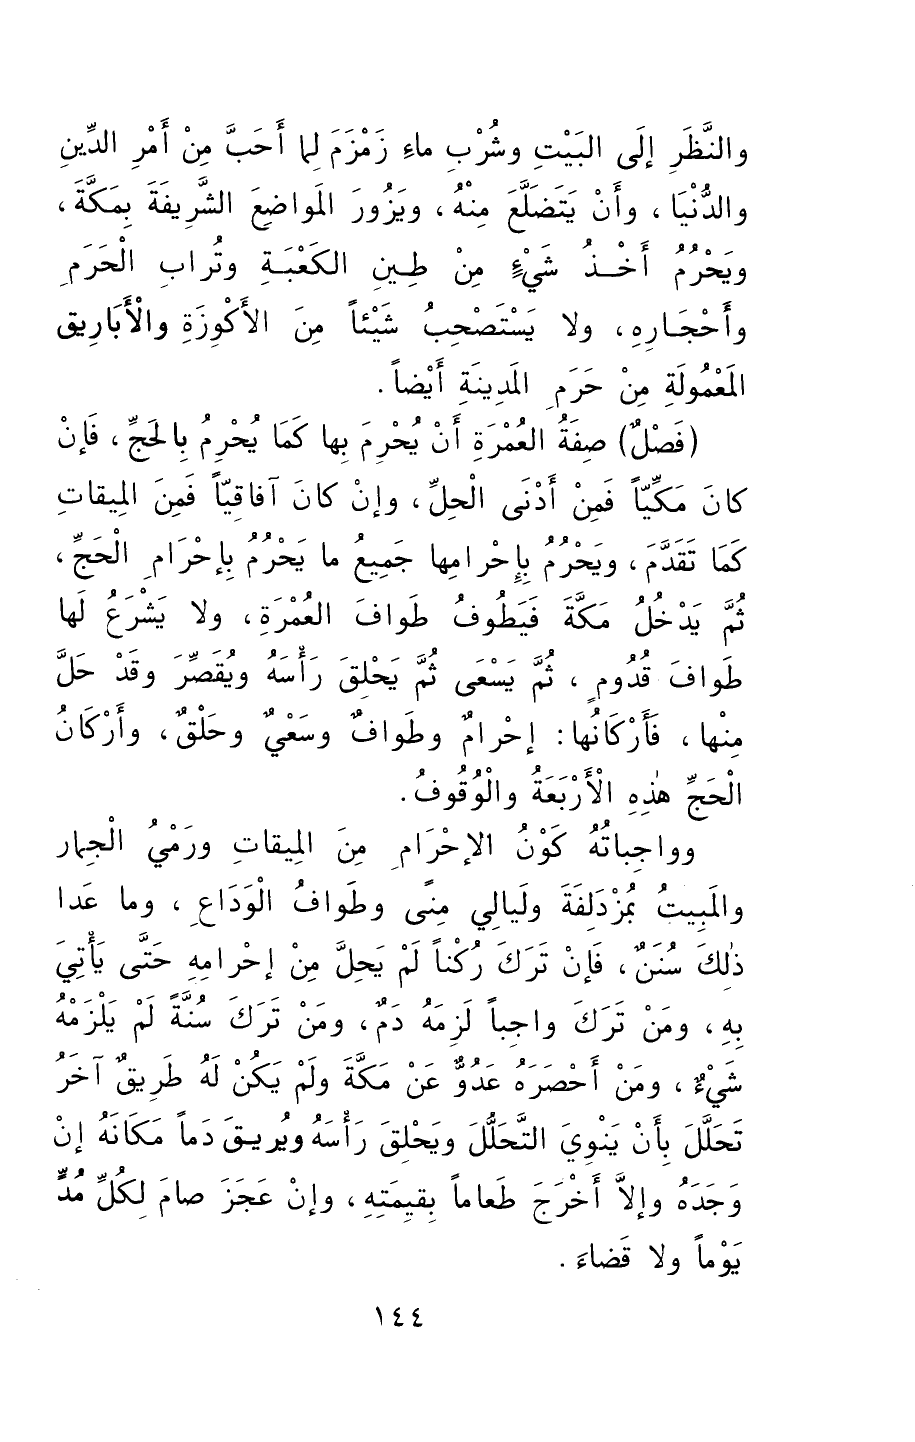 والنَّظَرِ إلَى البَيْتِ وشُرْبِ ماءِ زَمْزَمَ لِما أَحَبَّ مِنْ أَمْرِ الدِّينِ
والدُّنْيَا ، وأَنْ يَتَضَلَّعَ مِنْهُ ، ويَزُورَ المَواضِعَ الشَّرِيفَةَ بِمَكَّةَ ،
ويَحْرُمُ أَخْـذُ شَيْءٍ مِنْ طِـينِ الكَعْبَـةِ وتُرابِ الْحَرَمِ
وأَحْجَـارِهِ ، ولا يَسْتَصْحِبُ شَيْئاً مِنَ الأَكْوِزَةِ والْأَبَارِيقِ
المَعْمُولَةِ مِنْ حَرَمِ المَدِينَةِ أَيْضاً .
(فَصْلٌ) صِفَةُ العُمْرَةِ أَنْ يُحْرِمَ بِها كَمَا يُحْرِمُ بِالحَجِّ ، فَإنْ
كانَ مَكِّيّاً فَمِنْ أَدْنَى الْحِلِّ ، وإنْ كانَ آفاقِيّاً فَمِنَ المِيقاتِ
كَمَا تَقَدَّمَ ، ويَحْرُمُ بِإحْرامِها جَمِيعُ ما يَحْرُمُ بِإحْرَامِ الْحَجِّ ،
ثُمَّ يَدْخُلُ مَكَّةَ فَيَطُوفُ طَوافَ العُمْرَةِ ، ولا يَشْرَعُ لَها
طَوافَ قُدُومٍ ، ثُمَّ يَسْعَى ثُمَّ يَحْلِقَ رَأْسَهُ ويُقَصِّرَ وقَدْ حَلَّ
مِنْها ، فَأَرْكَانُها: إحْرامٌ وطَوافٌ وسَعْيٌ وحَلْقٌ ، وأَرْكَانُ
الْحَجِّ هٰذِهِ الْأَرْبَعَةُ والْوُقُوفُ .
وواجِباتُهُ كَوْنُ الإحْرَامِ مِنَ المِيقاتِ ورَمْيُ الْجِمارِ
والمَبِيتُ بِمُزْدَلِفَةَ ولَيالِي مِنًى وطَوافُ الْوَدَاعِ ، وما عَدا
ذٰلِكَ سُنَنٌ ، فَإنْ تَرَكَ رُكْناً لَمْ يَحِلَّ مِنْ إحْرامِهِ حَتَّى يَأْتِيَ
بِهِ ، ومَنْ تَرَكَ واجِباً لَزِمَهُ دَمٌ ، ومَنْ تَرَكَ سُنَّةً لَمْ يَلْزَمْهُ
شَيْءٌ ، ومَنْ أَحْصَرَهُ عَدُوٌّ عَنْ مَكَّةَ ولَمْ يَكُنْ لَهُ طَرِيقٌ آخَرُ
تَحَلَّلَ بِأَنْ يَنْوِيَ التَّحَلُّلَ ويَحْلِقَ رَأْسَهُ ويُرِيـقَ دَماً مَكَانَهُ إنْ
وَجَدَهُ وإلاَّ أَخْرَجَ طَعاماً بِقِيمَتِهِ ، وإنْ عَجَزَ صامَ لِكُلِّ مُدٍّ
يَوْماً ولا قَضاءَ .
١٤٤